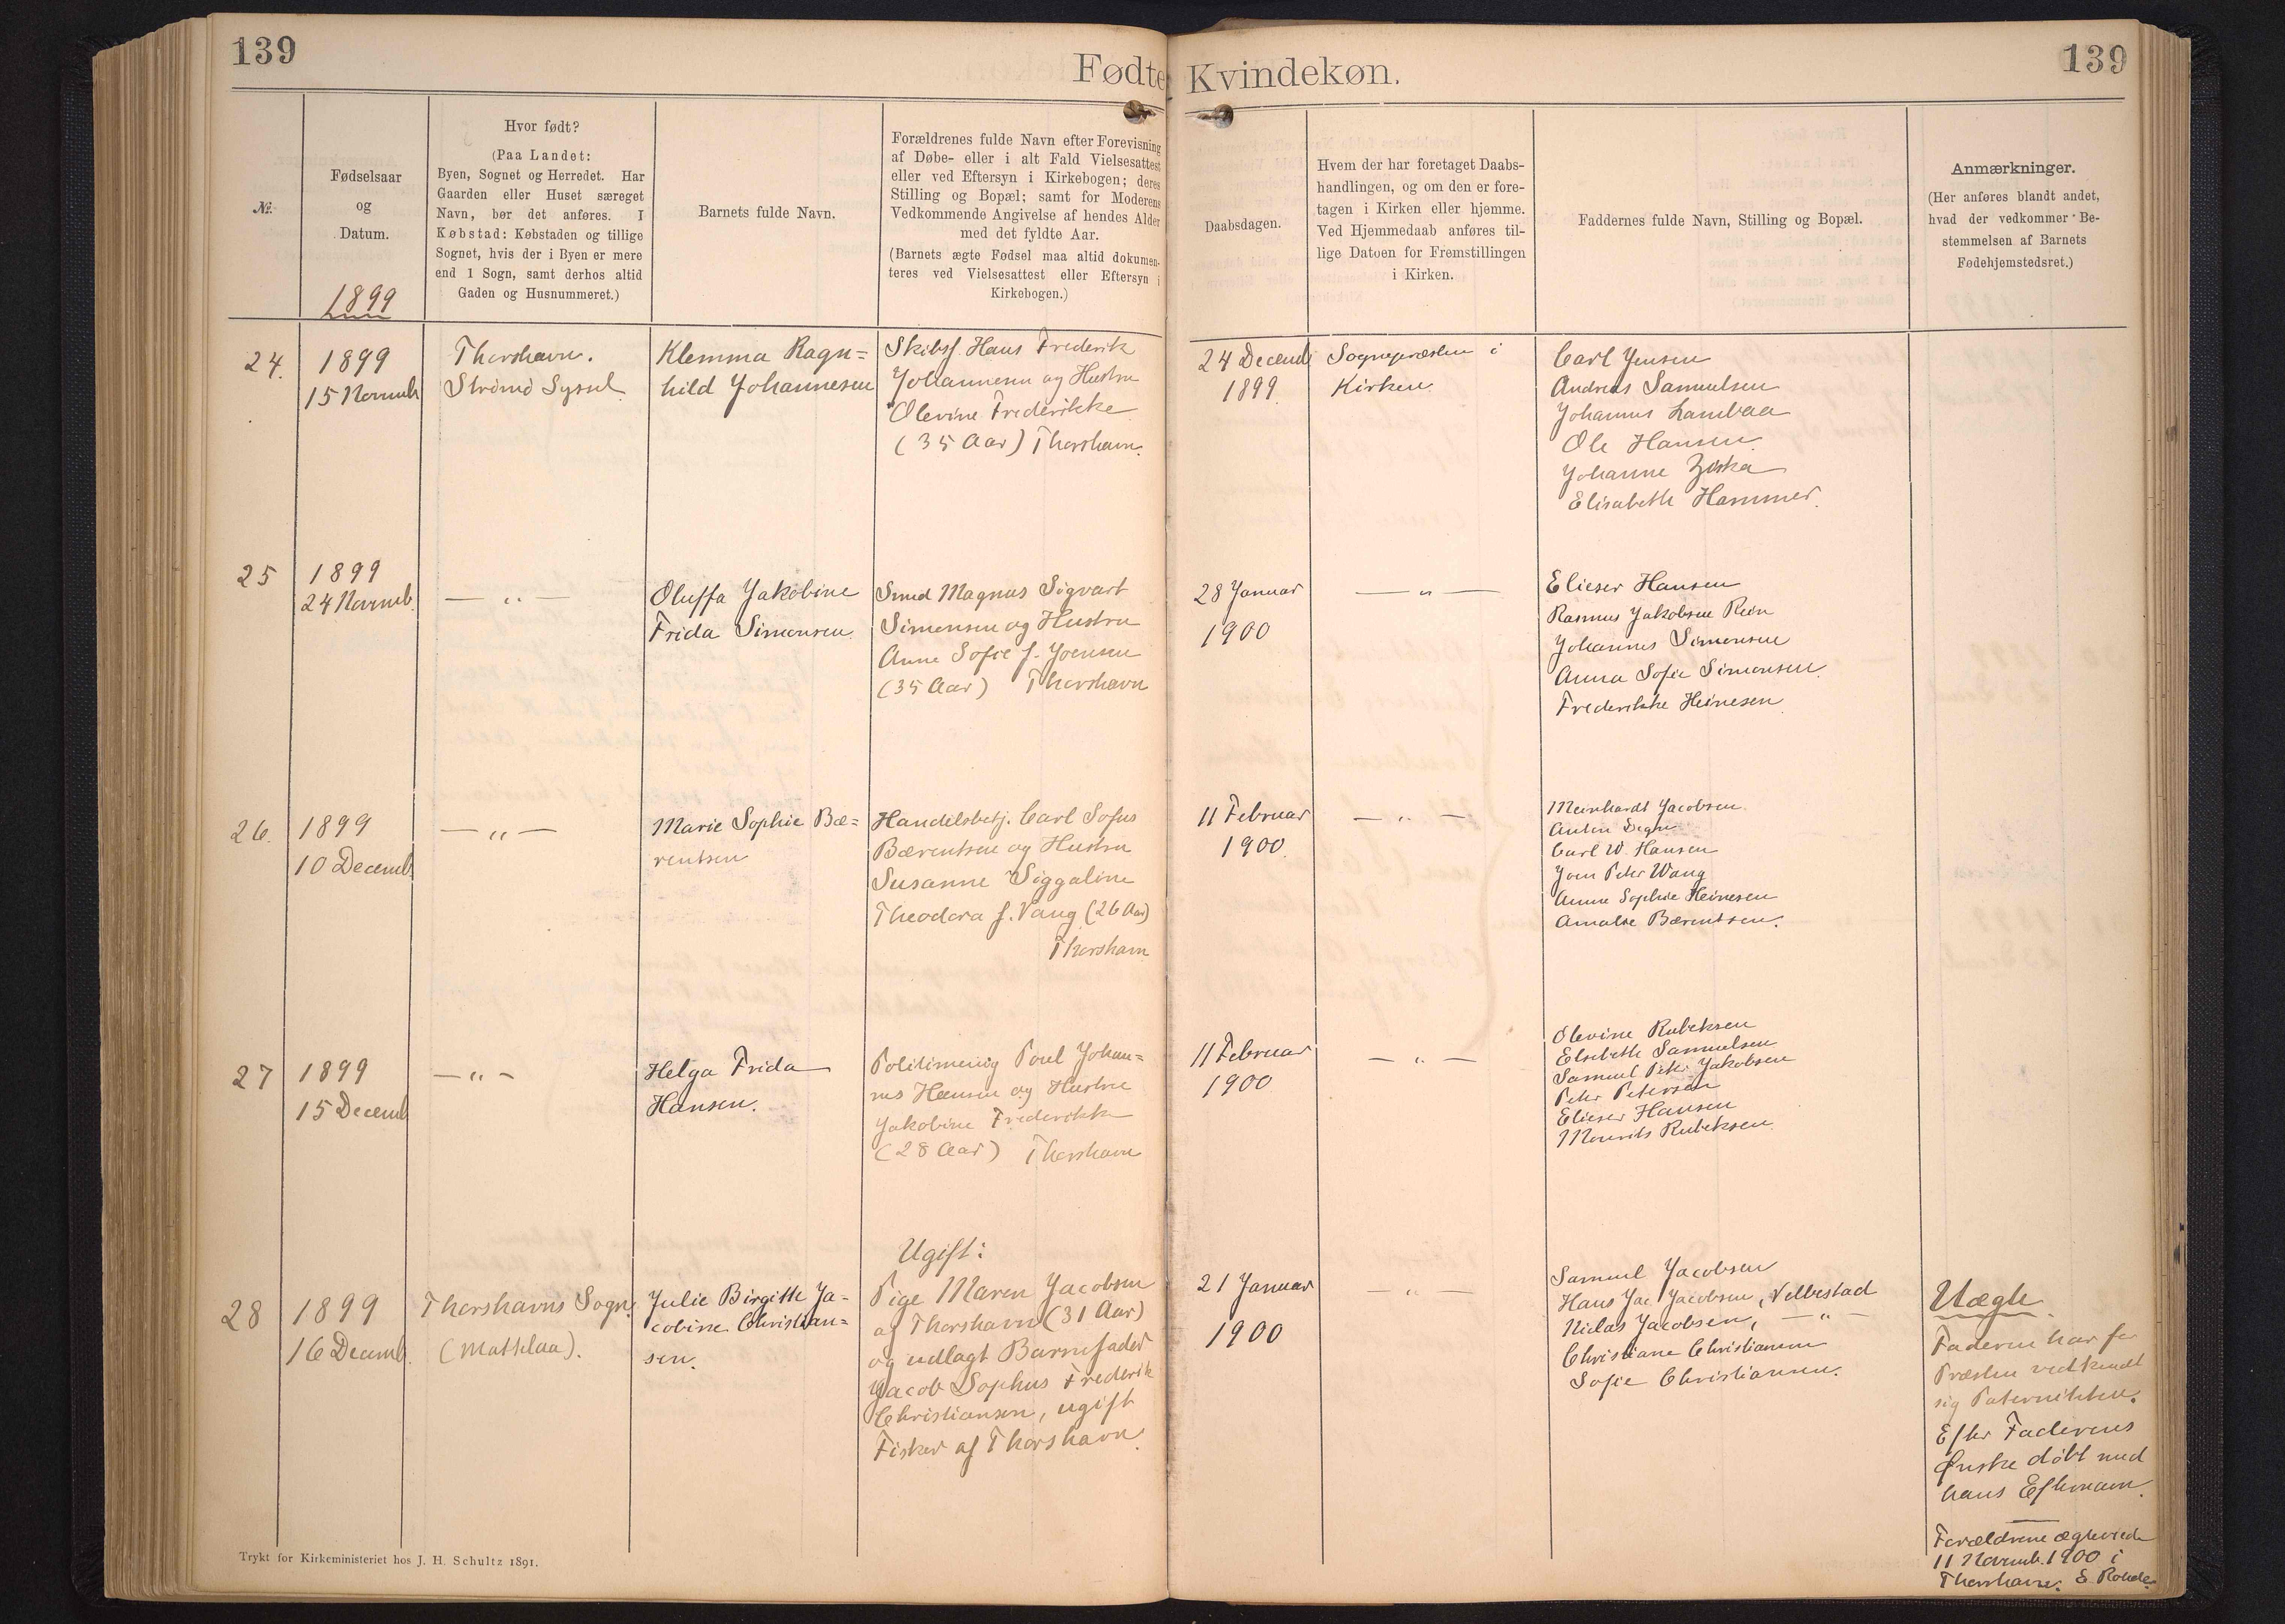 139
Fødte Kvindekøn.
139
№.
Fødselsaar
og
Datum.
1899
Hvor født?
(Paa Landet:
Byen, Sognet og Herredet. Har
Gaarden eller Huset særeget
Navn, bør det anføres. I
Købstad: Købstaden og tillige
Sognet, hvis der i Byen er mere
end 1 Sogn, samt derhos altid
Gaden og Husnummeret.)
Barnets fulde Navn.
Forældrenes fulde Navn efter Forevisning
af Døbe- eller i alt Fald Vielsesattest
eller ved Eftersyn i Kirkebogen; deres
Stilling og Bopæl; samt for Moderens
Vedkommende Angivelse af hendes Alder
med det fyldte Aar.
(Barnets ægte Fødsel maa altid dokumen-
teres ved Vielsesattest eller Eftersyn i
Kirkebogen.)
Daabsdagen.
Hvem der har foretaget Daabs-
handlingen, og om den er fore-
tagen i Kirken eller hjemme.
Ved Hjemmedaab anføres til-
lige Datoen for Fremstillingen
i Kirken.
Faddernes fulde Navn, Stilling og Bopæl.
Anmærkninger.
(Her anføres blandt andet,
hvad der vedkommer Be-
stemmelsen af Barnets
Fødehjemstedsret.)
24.
1899
15 Novemb
Thorshavn.
Strömö Syssel
Klemma Ragn=
hild Johannesen
Skibsf. Hans Frederik
Johannesen og Hustru
Olevine Frederikke
(35 Aar) Thorshavn.
24 Decemb
1899.
Sognepræsten i
Kirken
Carl Jensen
Andreas Samuelsen
Johannes Lambaa
Ole Hansen
Johanne Ziska
Elisabeth Hammer.
25
1899
24 Novemb.
— „ —
Oluffa Jakobine
Frida Simonsen.
Smed Magnus Sigvart
Simonsen og Hustru
Anne Sofie f. Joensen
(35 Aar) Thorshavn
28 Januar
1900
— „ —
Elieser Hansen
Rasmus Jakobsen Rein
Johannes Simonsen
Anna Sofie Simonsen.
Frederikke Heinesen
26.
1899
10 Decemb.
— „ —
Marie Sophie Bæ=
rentsen
Handelsbetj. Carl Sofus
Bærentsen og Hustru
Susanne Siggaline
Theodora f. Vang (26 Aar)
Thorshavn
11 Februar
1900.
— „ —
Meinhardt Jacobsen.
Anton Degn
Carl W. Hansen
Joen Peter Wang
Anne Sophie Heinesen
Amalie Bærentsen.
27
1899
15 Decemb
— „ —
Helga Frida
Hansen.
Poul Johan=
nes Hansen og Hustru
Jakobine Frederikke
(28 Aar) Thorshavn
11 Februar
1900
— „ —
Olevine Rubeksen
Elsebeth Samuelsen
Samuel Peter Jakobsen
Peter Petersen
Elieser Hansen
Mourits Rubeksen.
28
1899
16 Decemb.
Thorshavns Sogn.
Julie Birgitte Ja=
cobine Christian=
sen.
Ugift:
Pige Maren Jacobsen
af Thorshavn (31 Aar)
og udlagt Barnefader
Jacob Sophus Frederik
Christiansen, ugift
Fisker af Thorshavn.
21 Januar
1900
— „ —
Samuel Jacobsen
Hans Jac. Jacobsen, Velbestad
Niclas Jacobsen, — „ —
Christiane Christiansen
Sofie Christiansen.
Uægte.
Faderen har for
Præsten vedkendt
sig Paterniteten.
Efter Faderens
Ønske döbt med
hans Efternavn.
Forældrene ægteviede
11 Novemb. 1900 i
Thorshavn. E. Rohde
Trykt for Kirkeministeriet hos J. H. Schultz 1891.